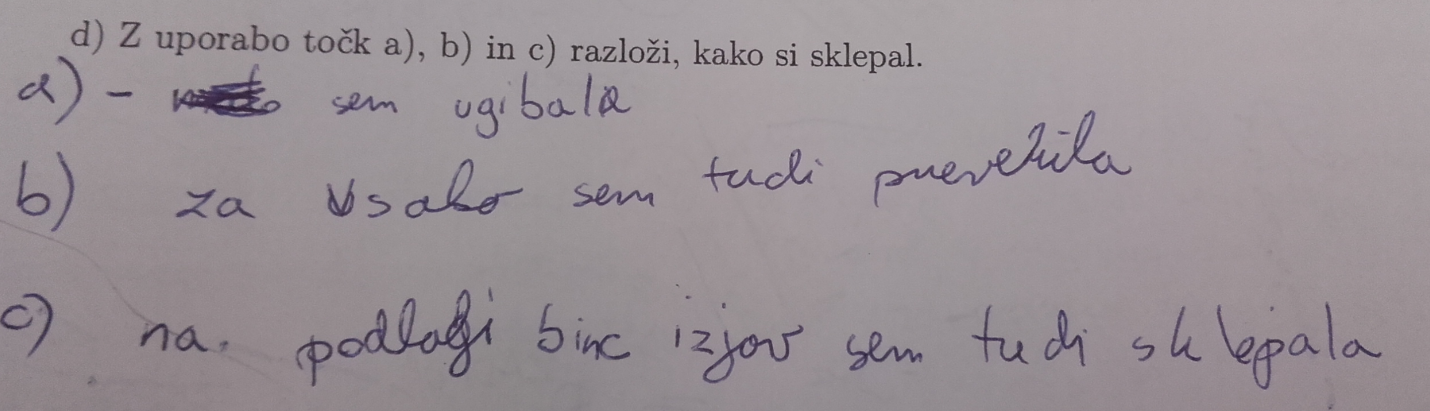 d) Z uporabo točk a), b) in c) razloži, kako si sklepal.
a) - sem ugibala
b) za vsako sem tudi preverila
c) na podlagi b in c izjav sem tudi sklepala